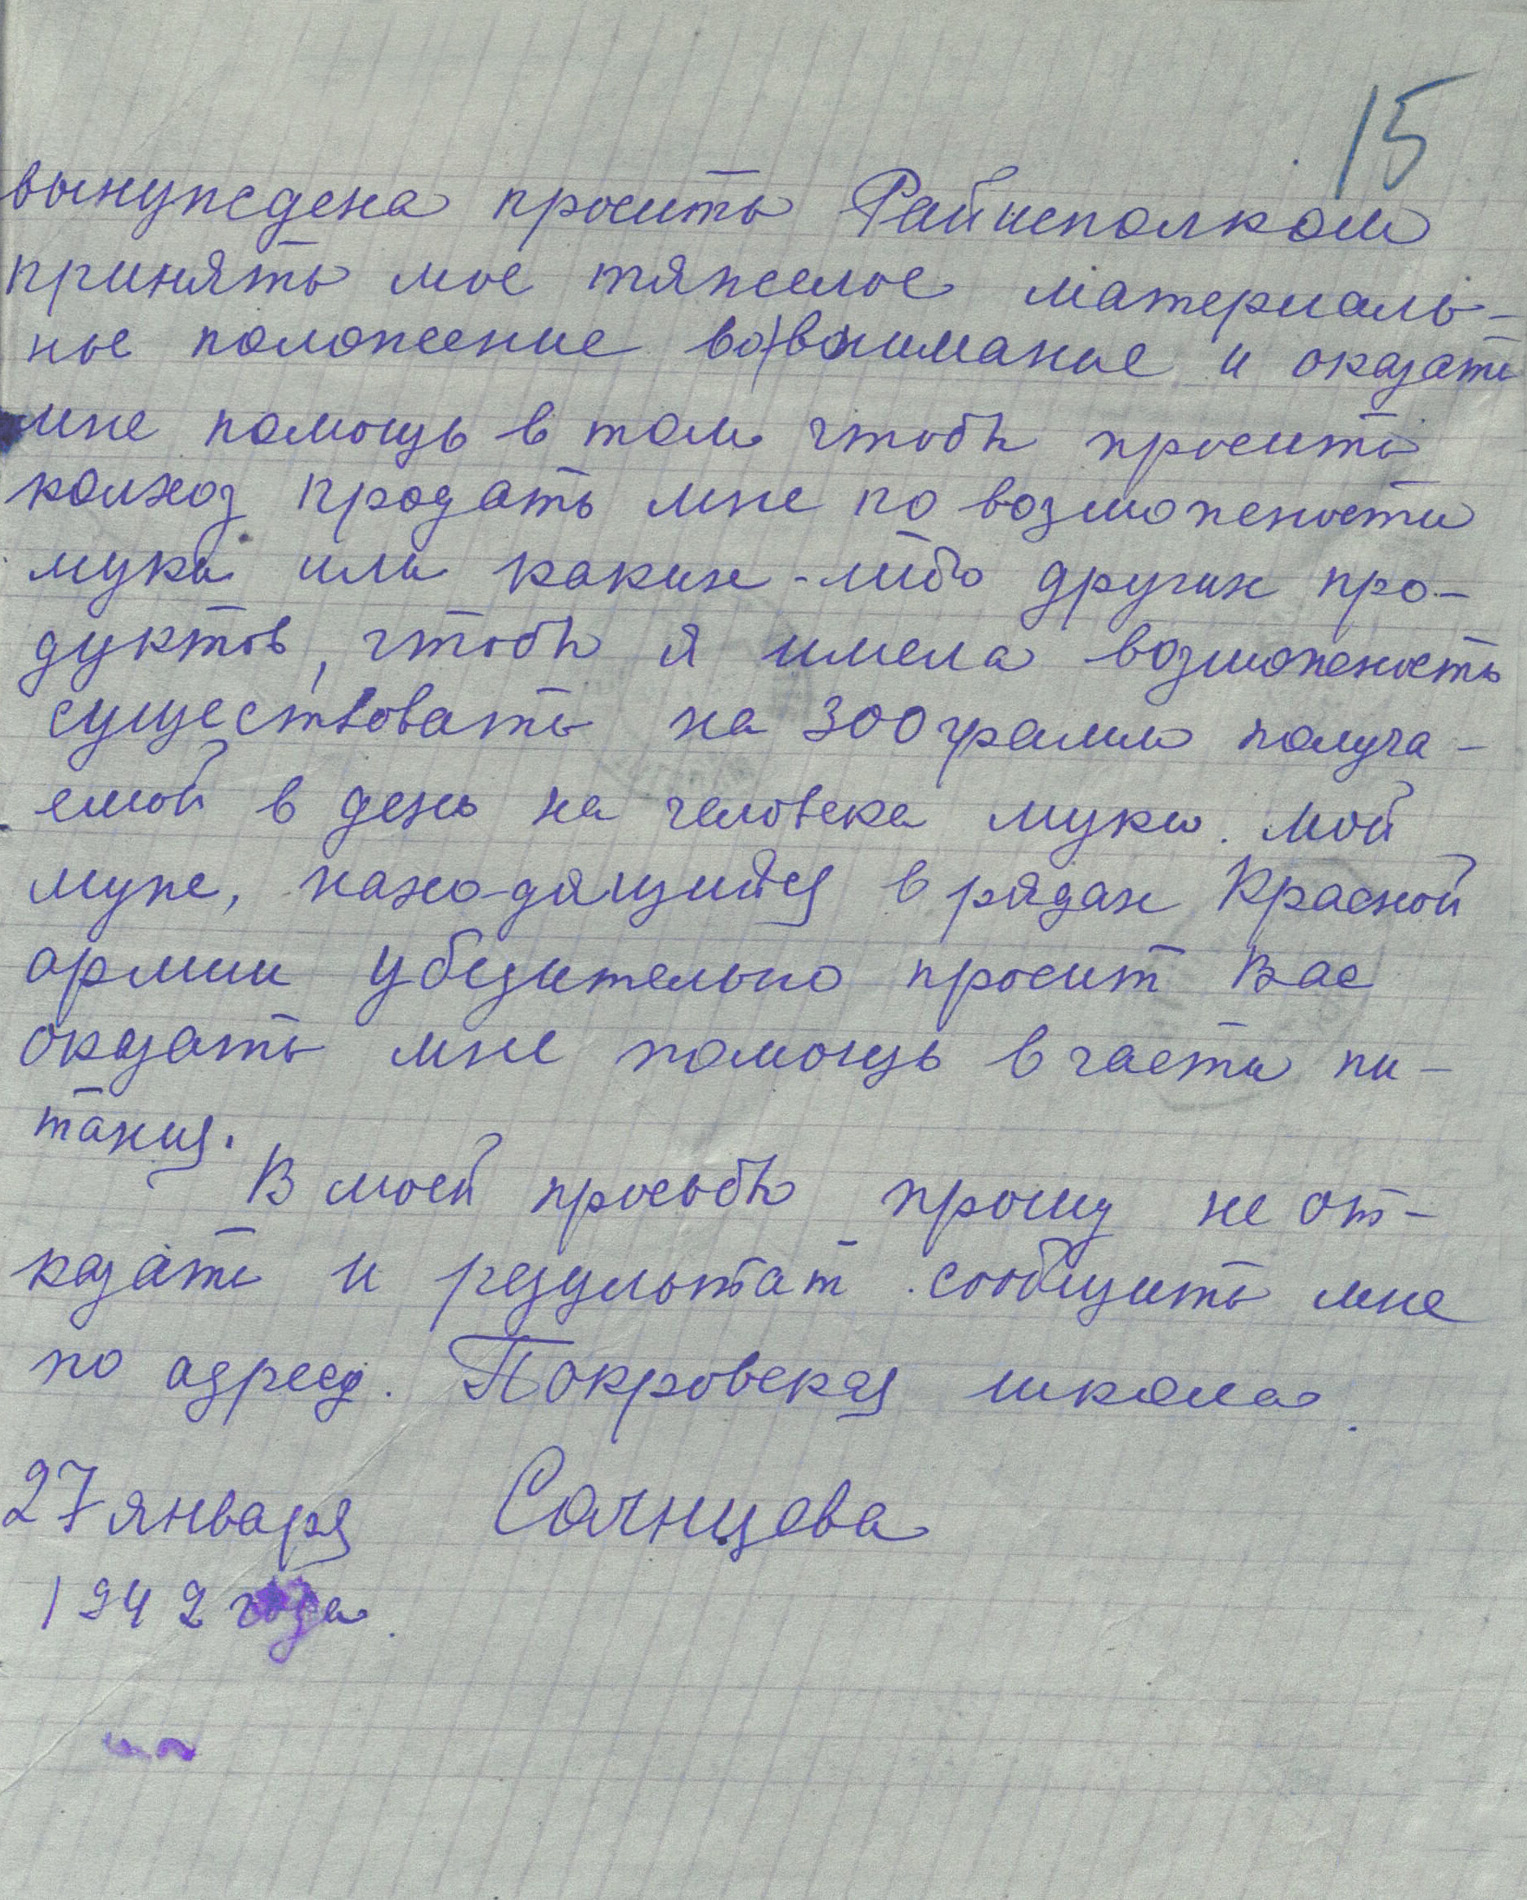 15
вынуждена просить Райисполком
принять мое тяжелое материаль-
ное положение во внимание и оказать
мне помощь в том чтобы просить
колхоз продать мне по возможности
муки или каких-либо других про-
дуктов, чтобы я имела возможность
существовать на 300 грамм получа-
емой в день на человека муки. Мой
муж, находящийся в рядах Красной
армии убедительно просит Вас
оказать мне помощь в части пи-
тания.
В моей просьбе прошу не от-
казать и результат сообщить мне
по адресу. Покровская школа.
27 января Солнцева
1942 года.